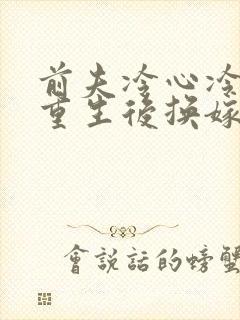 前夫冷心冷
重生後換嫁
會說話的螃蟹